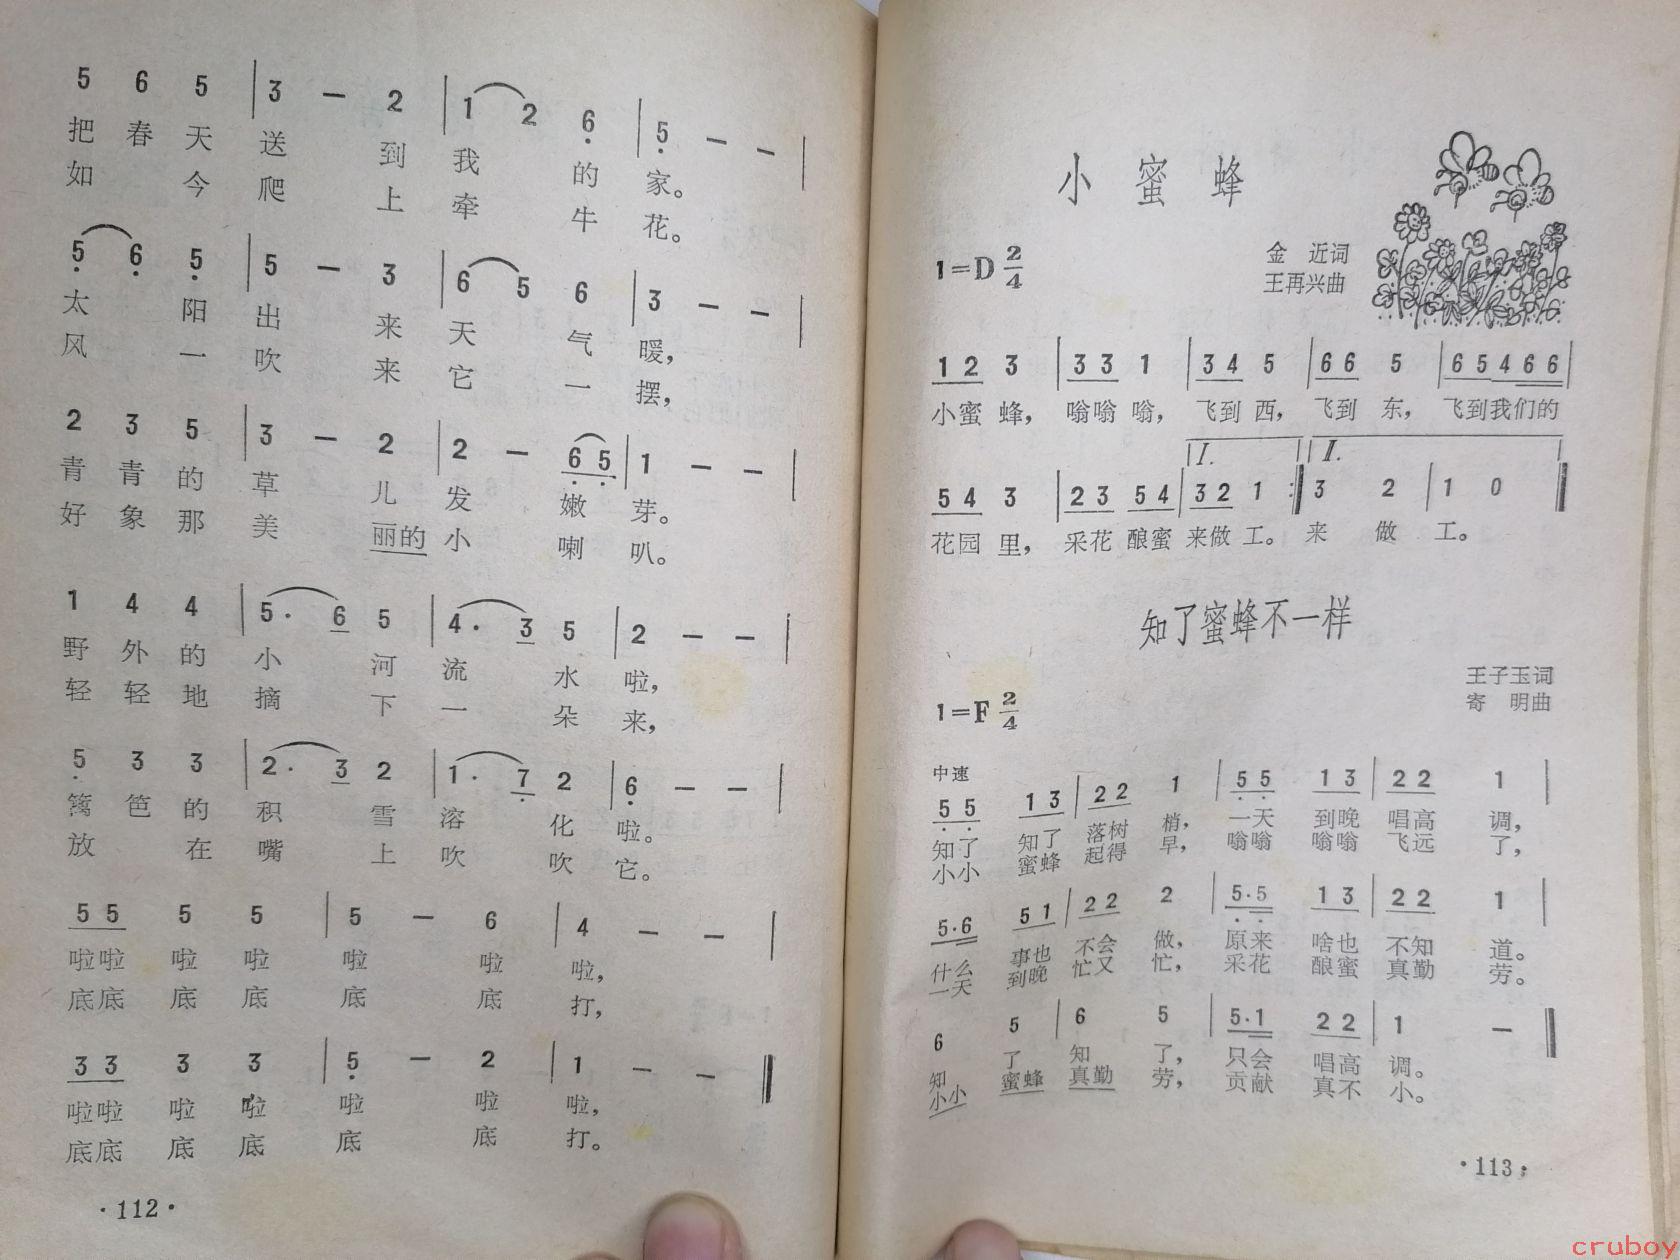 5 6 5 | 3 — 2 | 1 2 6 | 5 — — |
把 春 天 送 到 我 的 家。
如 今 爬 上 牵 牛 花。
5 6 5 | 5 — 3 | 6 5 6 | 3 — — |
太 阳 出 来 天 气 暖，
风 一 吹 来 它 一 摆，
2 3 5 | 3 — 2 | 2 — 6 5 | 1 — — |
青 青 的 草 儿 发 嫩 芽。
好 象 那 美 丽的 小 喇 叭。
1 4 4 | 5· 6 5 | 4· 3 5 | 2 — — |
野 外 的 小 河 流 水 啦，
轻 轻 地 摘 下 一 朵 来，
5 3 3 | 2· 3 2 | 1· 7 2 | 6 — — |
篱 笆 的 积 雪 溶 化 啦。
放 在 嘴 上 吹 吹 它。
5 5 5 5 | 5 — 6 | 4 — — |
啦啦 啦 啦 啦 啦 啦，
底底 底 底 底 底 打，
3 3 3 3 | 5 — 2 | 1 — — ‖
啦啦 啦 啦 啦 啦 啦，
底底 底 底 底 底 打。
·112·
小 蜜 蜂
1=D 2/4
金 近词
王再兴曲
1 2 3 | 3 3 1 | 3 4 5 | 6 6 5 | 6 5 4 6 6 |
小蜜 蜂， 嗡嗡 嗡， 飞到 西， 飞到 东， 飞到我们的
I. I.
5 4 3 | 2 3 5 4 | 3 2 1 :‖ 3 2 | 1 0 ‖
花园 里， 采花 酿蜜 来做 工。 来 做 工。
知了蜜蜂不一样
王子玉词
寄 明曲
1=F 2/4
中速
5 5 1 3 | 2 2 1 | 5 5 1 3 | 2 2 1 |
知了 知了 落树 梢， 一天 到晚 唱高 调，
小小 蜜蜂 起得 早， 嗡嗡 嗡嗡 飞远 了，
5·6 5 1 | 2 2 2 | 5·5 1 3 | 2 2 1 |
什么 事也 不会 做， 原来 啥也 不知 道。
一天 到晚 忙又 忙， 采花 酿蜜 真勤 劳。
6 5 | 6 5 | 5·1 2 2 | 1 — ‖
知 了 知 了， 只会 唱高 调。
小小 蜜蜂 真勤 劳， 贡献 真不 小。
·113·
cruboy